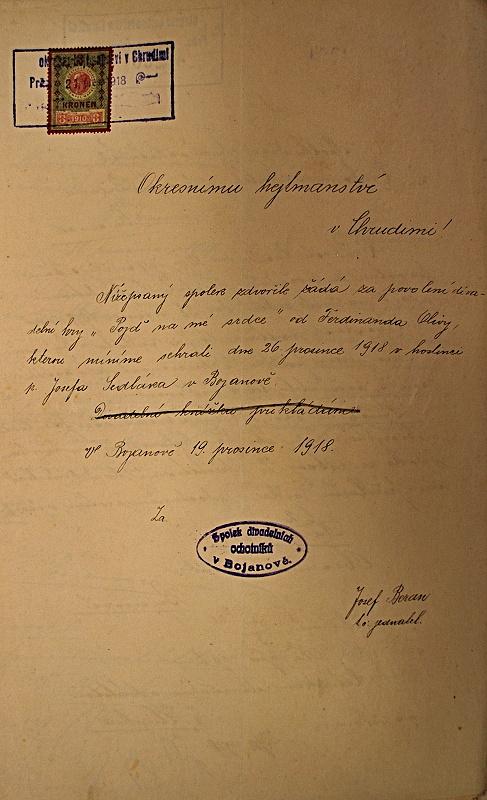 v Chrudimi
21 1918
KRONEN
1910
Okresnímu hejtmanství
v Chrudimi!
Nížepsaný spolek zdvořile žádá za povolení diva-
delní hry „Pojď na mé srdce" od Ferdinanda Olivy,
kterou míníme sehrati dne 26. prosince 1918 v hostinci
p. Josefa Sedláka v Bojanově.
Divadelní knížku přikládáme
V Bojanově 19. prosince 1918.
Za
Spolek divadelních
ochotníků
v Bojanově.
Josef Beran
t.č. jednatel.